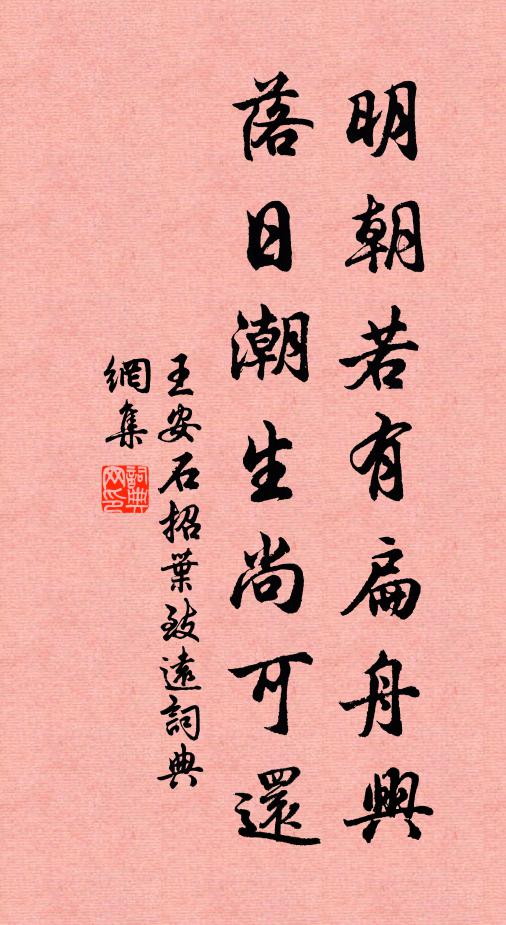 明朝若有扁舟興
落日潮生尚可還
王安石招葉致遠詞典
網集
詞典
网印